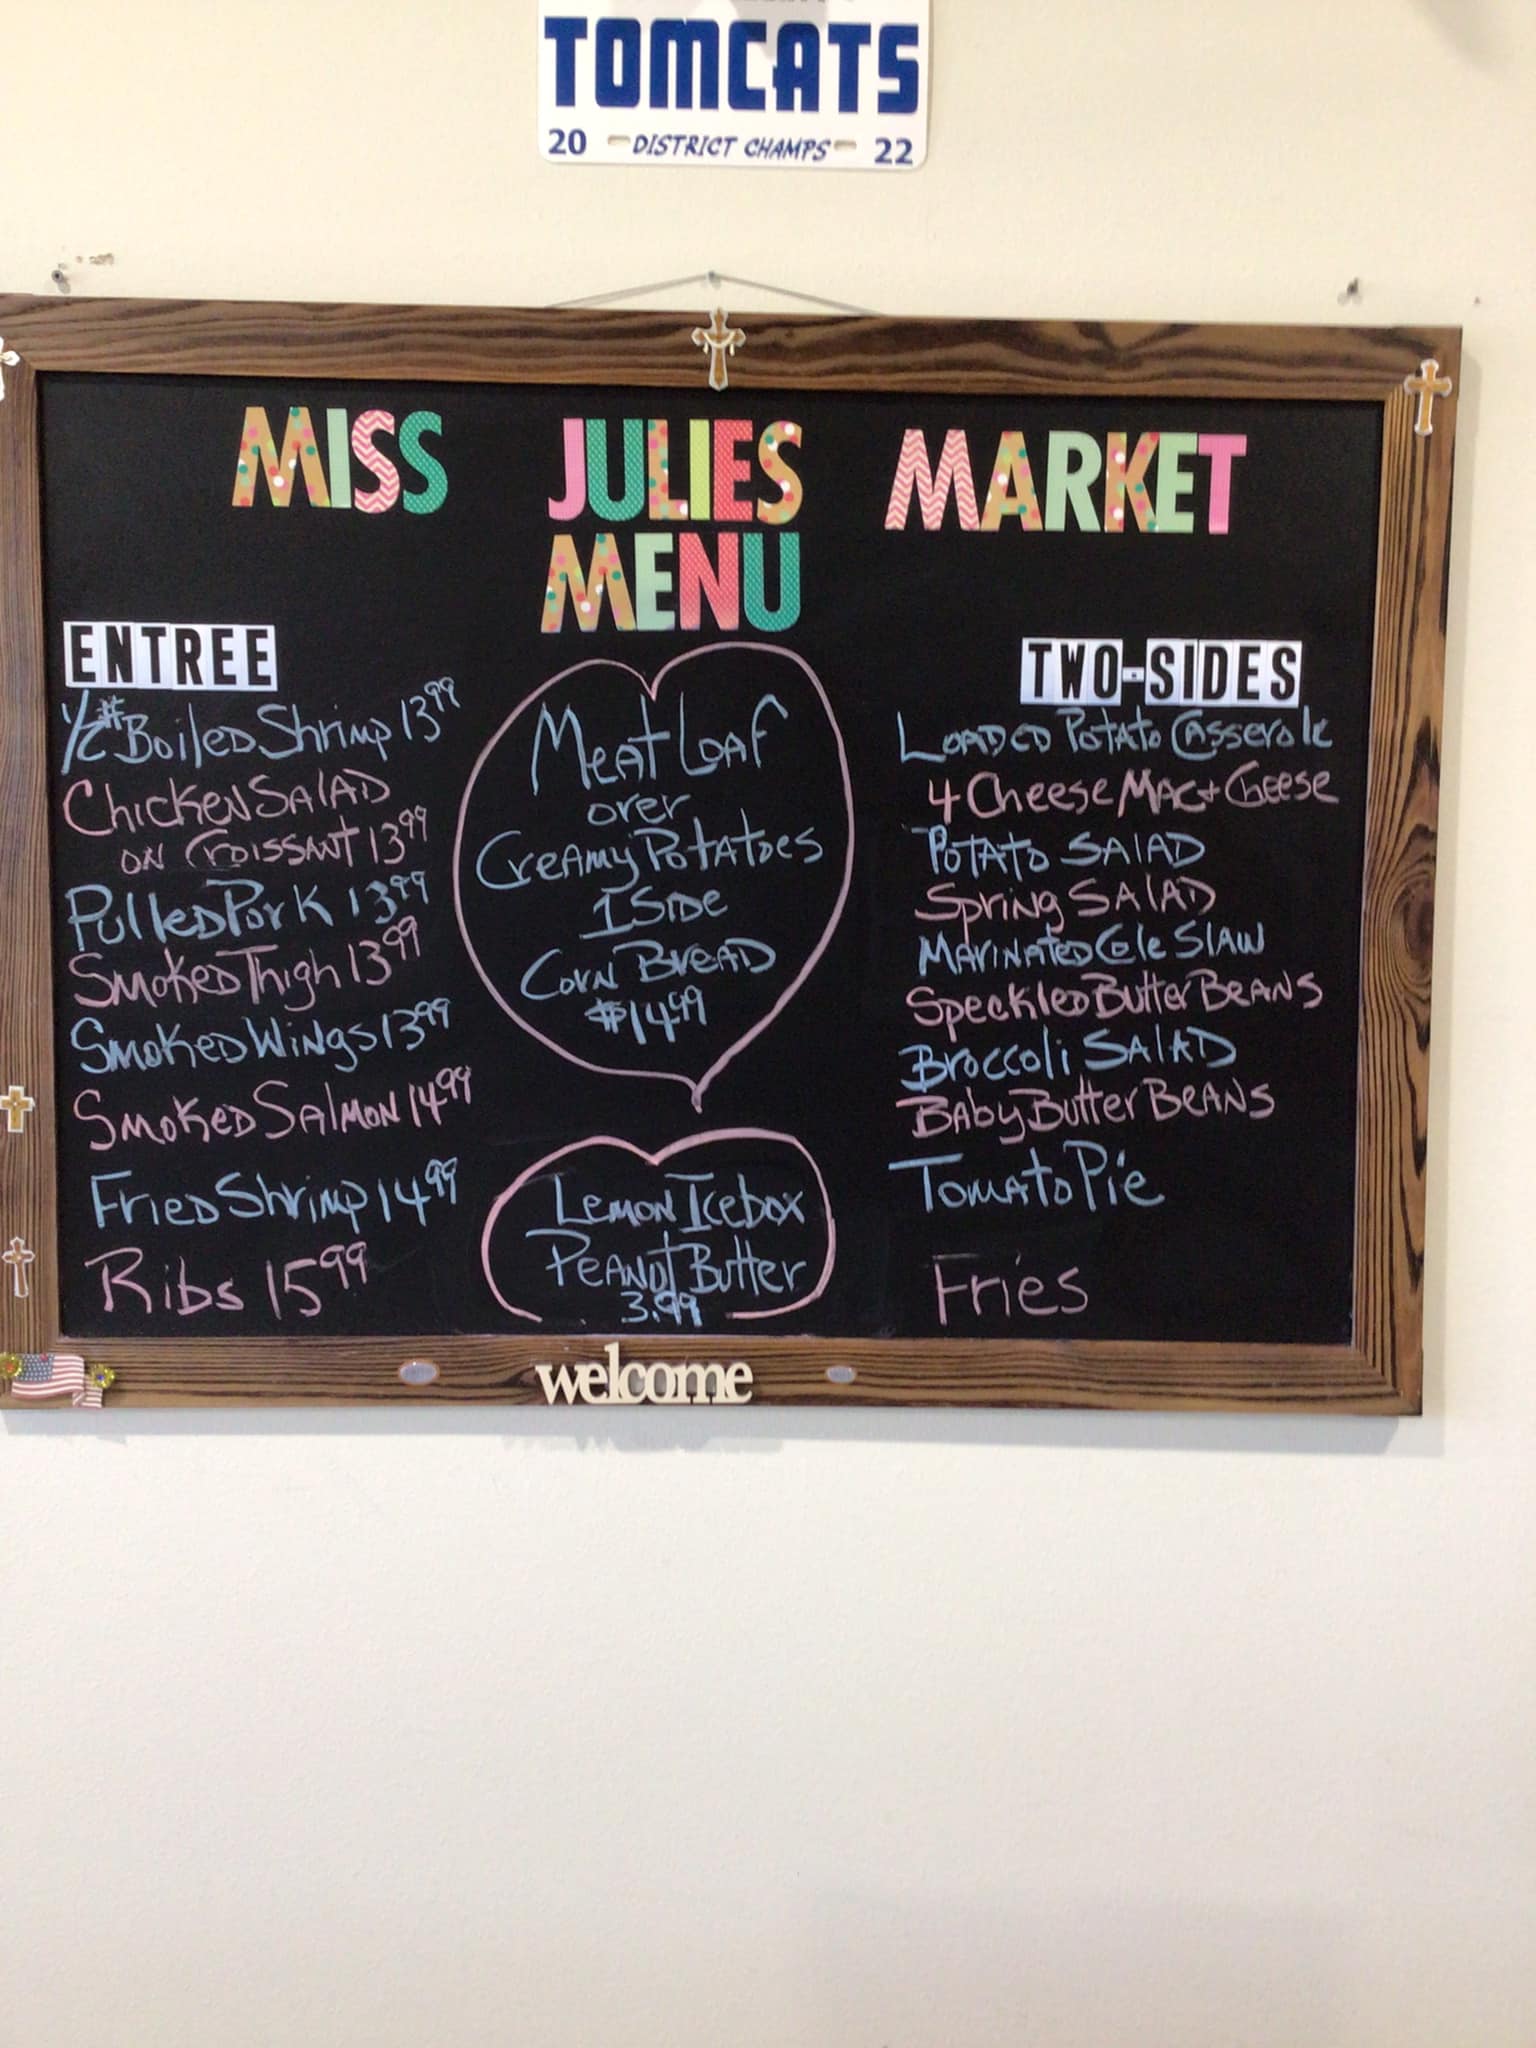 TOMCATS
20 DISTRICT CHAMPS 22
MISS JULIES MARKET
MENU
ENTREE
1/2# Boiled Shrimp 13.99
Chicken Salad
on Croissant 13.99
Pulled Pork 13.99
Smoked Thigh 13.99
Smoked Wings 13.99
Smoked Salmon 14.99
Fried Shrimp 14.99
Ribs 15.99
Meat Loaf
over
Creamy Potatoes
1 Side
Corn Bread
$14.99
Lemon Icebox
Peanut Butter
3.99
TWO-SIDES
Loaded Potato Casserole
4 Cheese Mac + Cheese
Potato Salad
Spring Salad
Marinated Cole Slaw
Speckled Butter Beans
Broccoli Salad
Baby Butter Beans
Tomato Pie
Fries
welcome